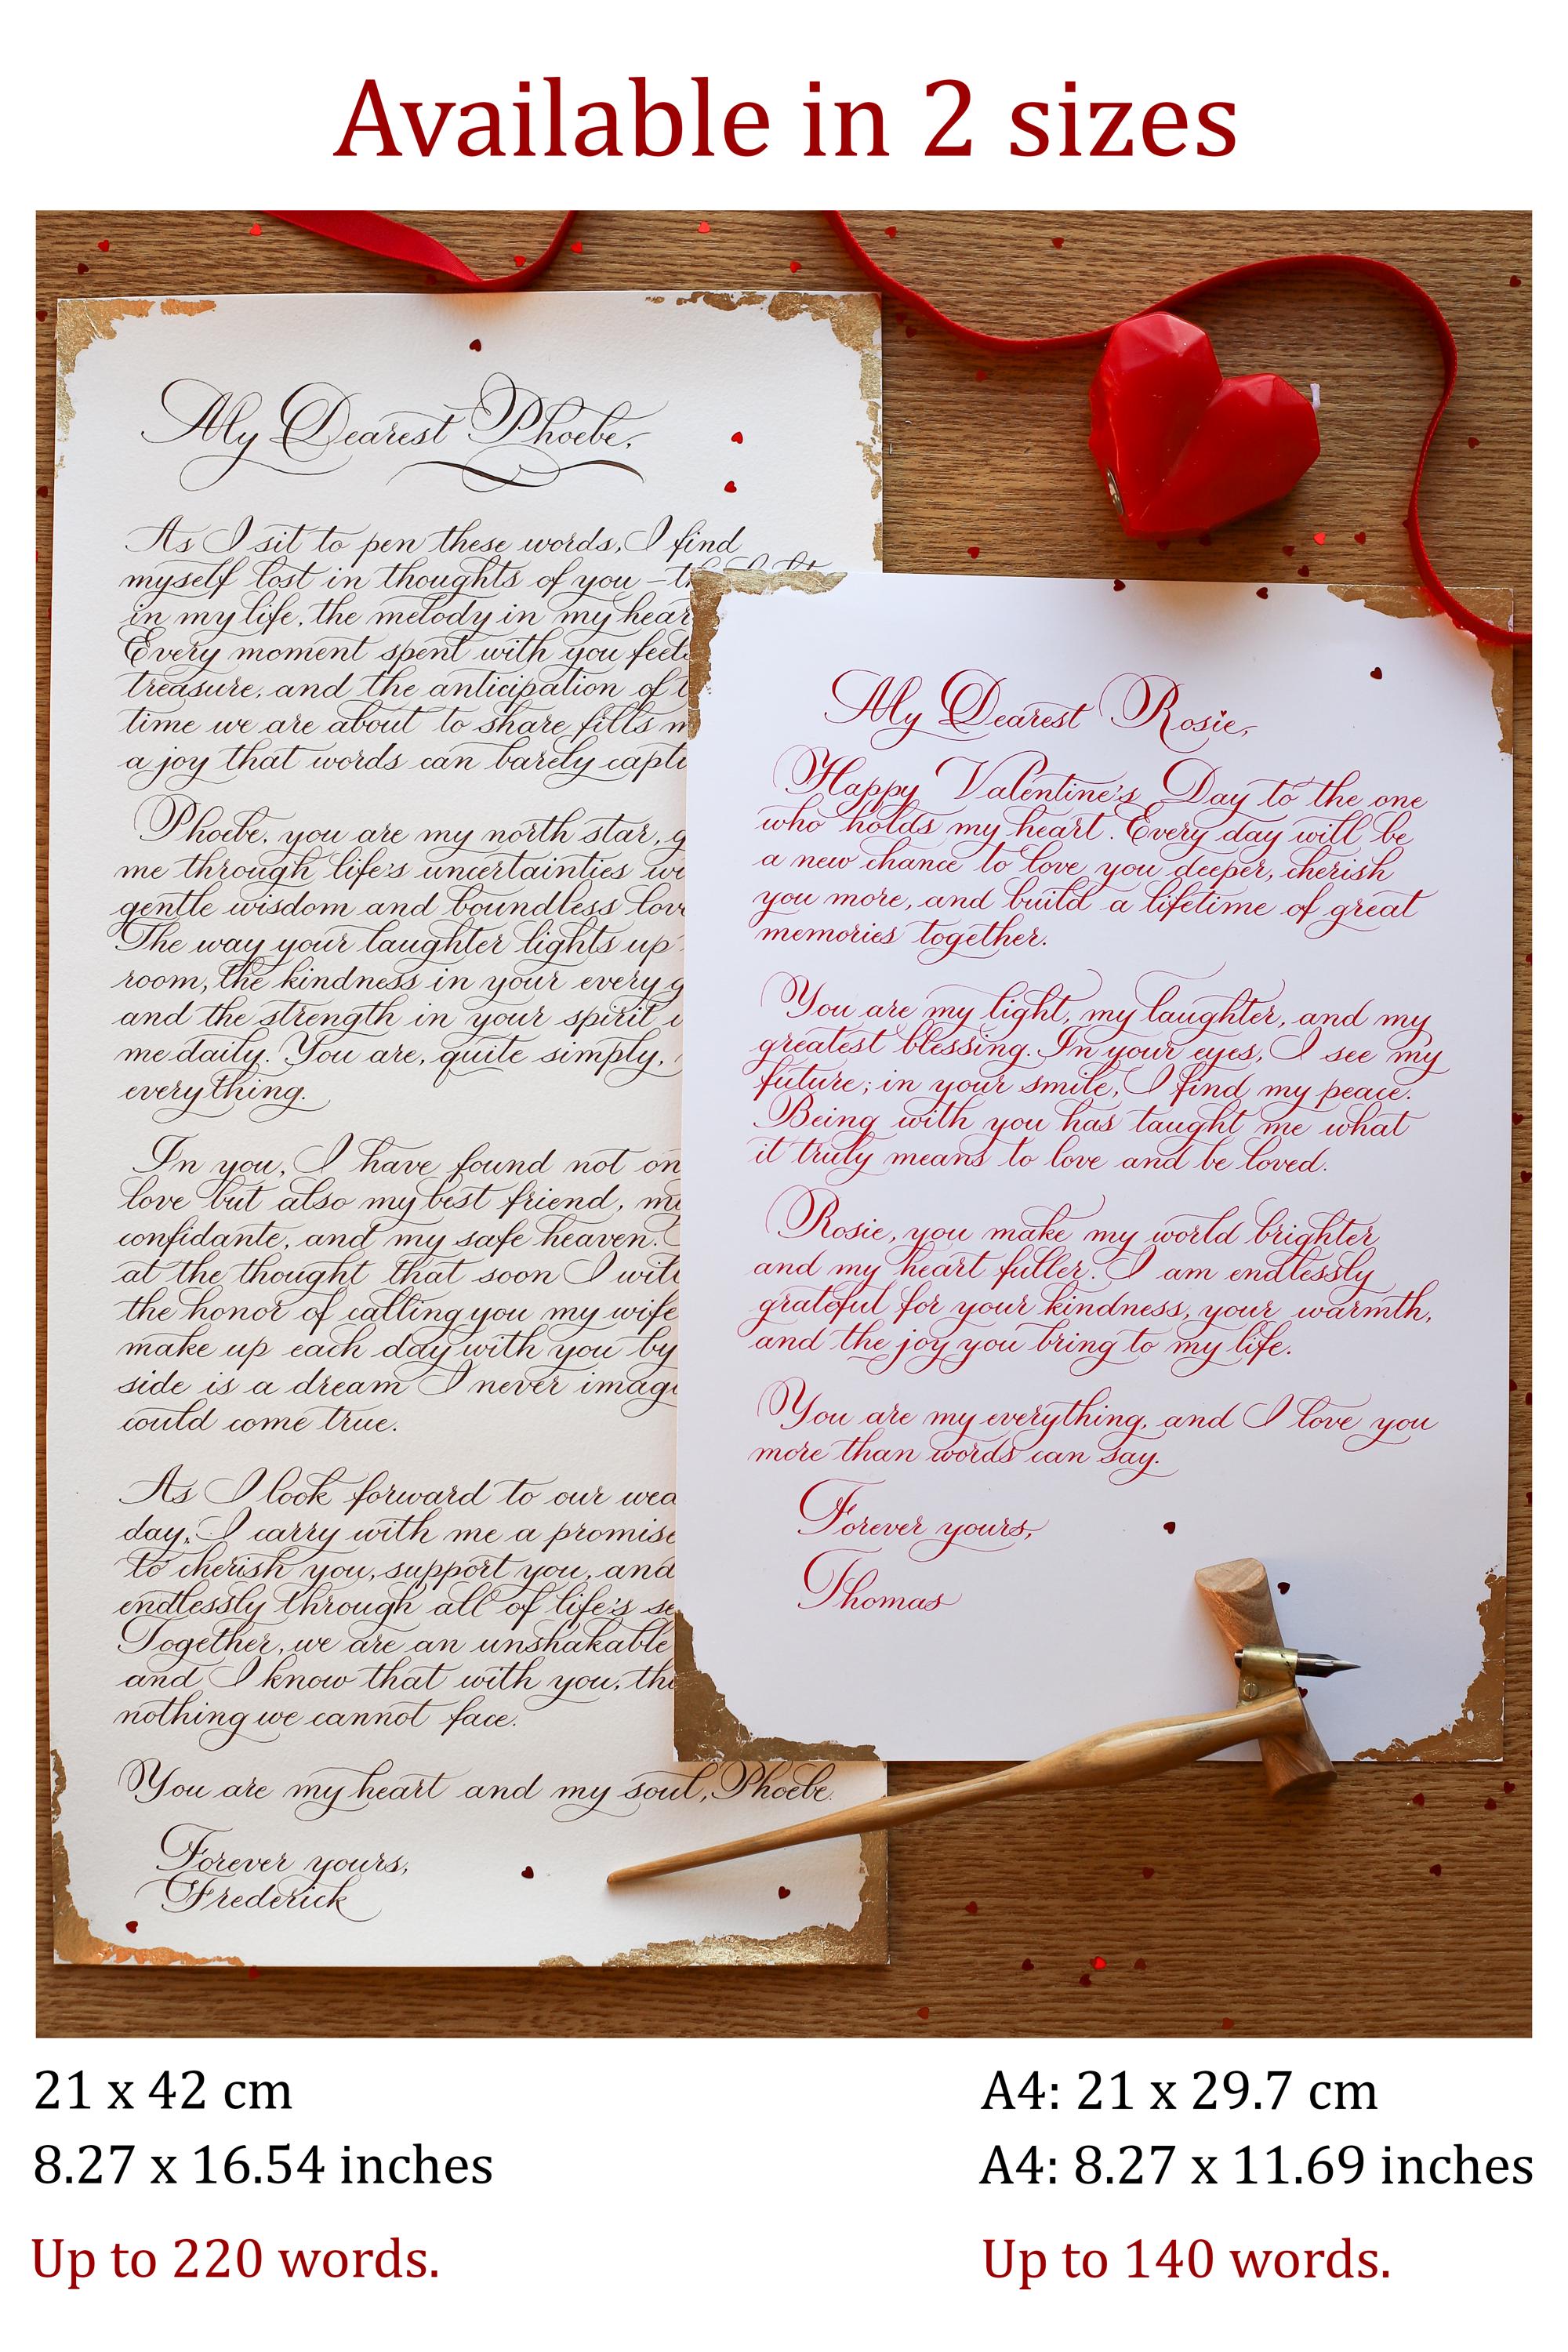 Available in 2 sizes
My Dearest Phoebe,
As I sit to pen these words, I find
myself lost in thoughts of you –
in my life, the melody in my hear
Every moment spent with you feel
treasure, and the anticipation of
time we are about to share fills
a joy that words can barely capt
Phoebe, you are my north star,
me through life's uncertainties
gentle wisdom and boundless lov
The way your laughter lights up
room, the kindness in your every
and the strength in your spirit
me daily. You are, quite simply,
everything.
In you, I have found not on
love but also my best friend,
confidante, and my safe heaven.
at the thought that soon I will
the honor of calling you my wife
make up each day with you by
side is a dream I never imag
could come true.
As I look forward to our wed
day, I carry with me a promise
to cherish you, support you, and
endlessly through all of life's se
Together, we are an unshakable
and I know that with you, the
nothing we cannot face.
You are my heart and my soul, Phoebe.
Forever yours,
Frederick
My Dearest Rosie,
Happy Valentine's Day to the one
who holds my heart. Every day will be
a new chance to love you deeper, cherish
you more, and build a lifetime of great
memories together.
You are my light, my laughter, and my
greatest blessing. In your eyes, I see my
future; in your smile, I find my peace.
Being with you has taught me what
it truly means to love and be loved.
Rosie, you make my world brighter
and my heart fuller. I am endlessly
grateful for your kindness, your warmth,
and the joy you bring to my life.
You are my everything, and I love you
more than words can say.
Forever yours,
Thomas
21 x 42 cm
8.27 x 16.54 inches
Up to 220 words.
A4: 21 x 29.7 cm
A4: 8.27 x 11.69 inches
Up to 140 words.